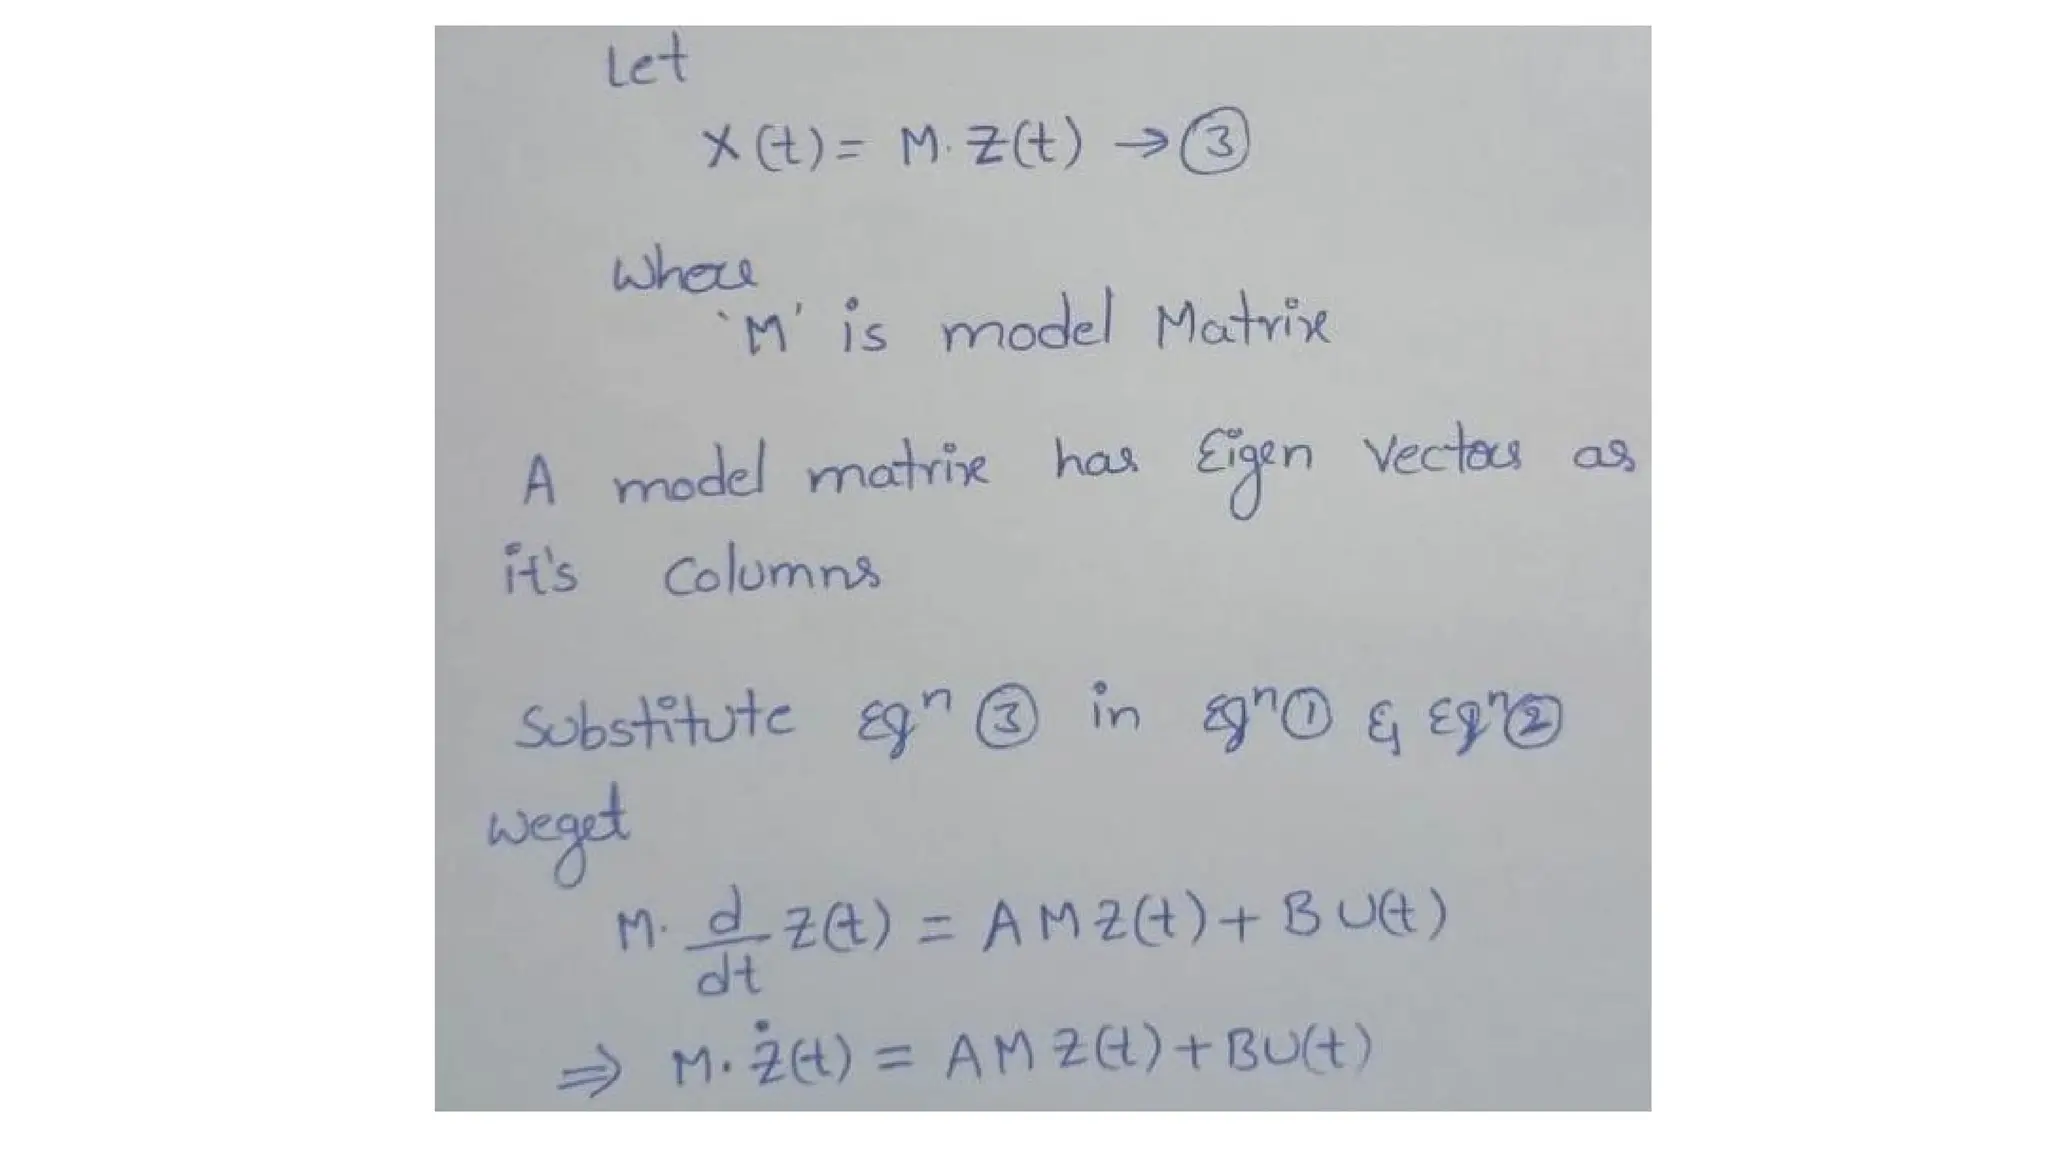 Let
X(t) = M. Z(t) → ③
Where
'M' is model Matrix
A model matrix has Eigen Vectors as
it's columns
Substitute Eqⁿ ③ in Eqⁿ ① & Eqⁿ ②
weget
M. d/dt Z(t) = A M Z(t) + B U(t)
⇒ M. Ż(t) = A M Z(t) + B U(t)